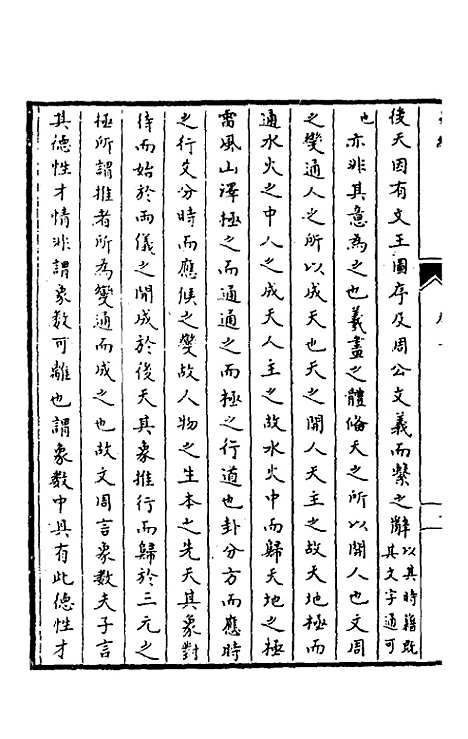 後天因有文王圖序及周公文義而繫之辭以其時籍既其文字通可
也亦非其意為之也羲畫之體俻天之所以開人也文周
之變通人之所以成天也天之開人天主之故天地極而
通水火之中人之成天人主之故水火中而歸天地之極
雷風山澤極之而通通之而極之行道也卦分方而應時
之行爻分時而應候之變故人物之生本之先天其象對
待而始於兩儀之開成於後天其象推行而歸於三元之
極所謂推者所為變通而成之也故文周言象數夫子言
其德性才情非謂象數可離也謂象數中具有此德性才